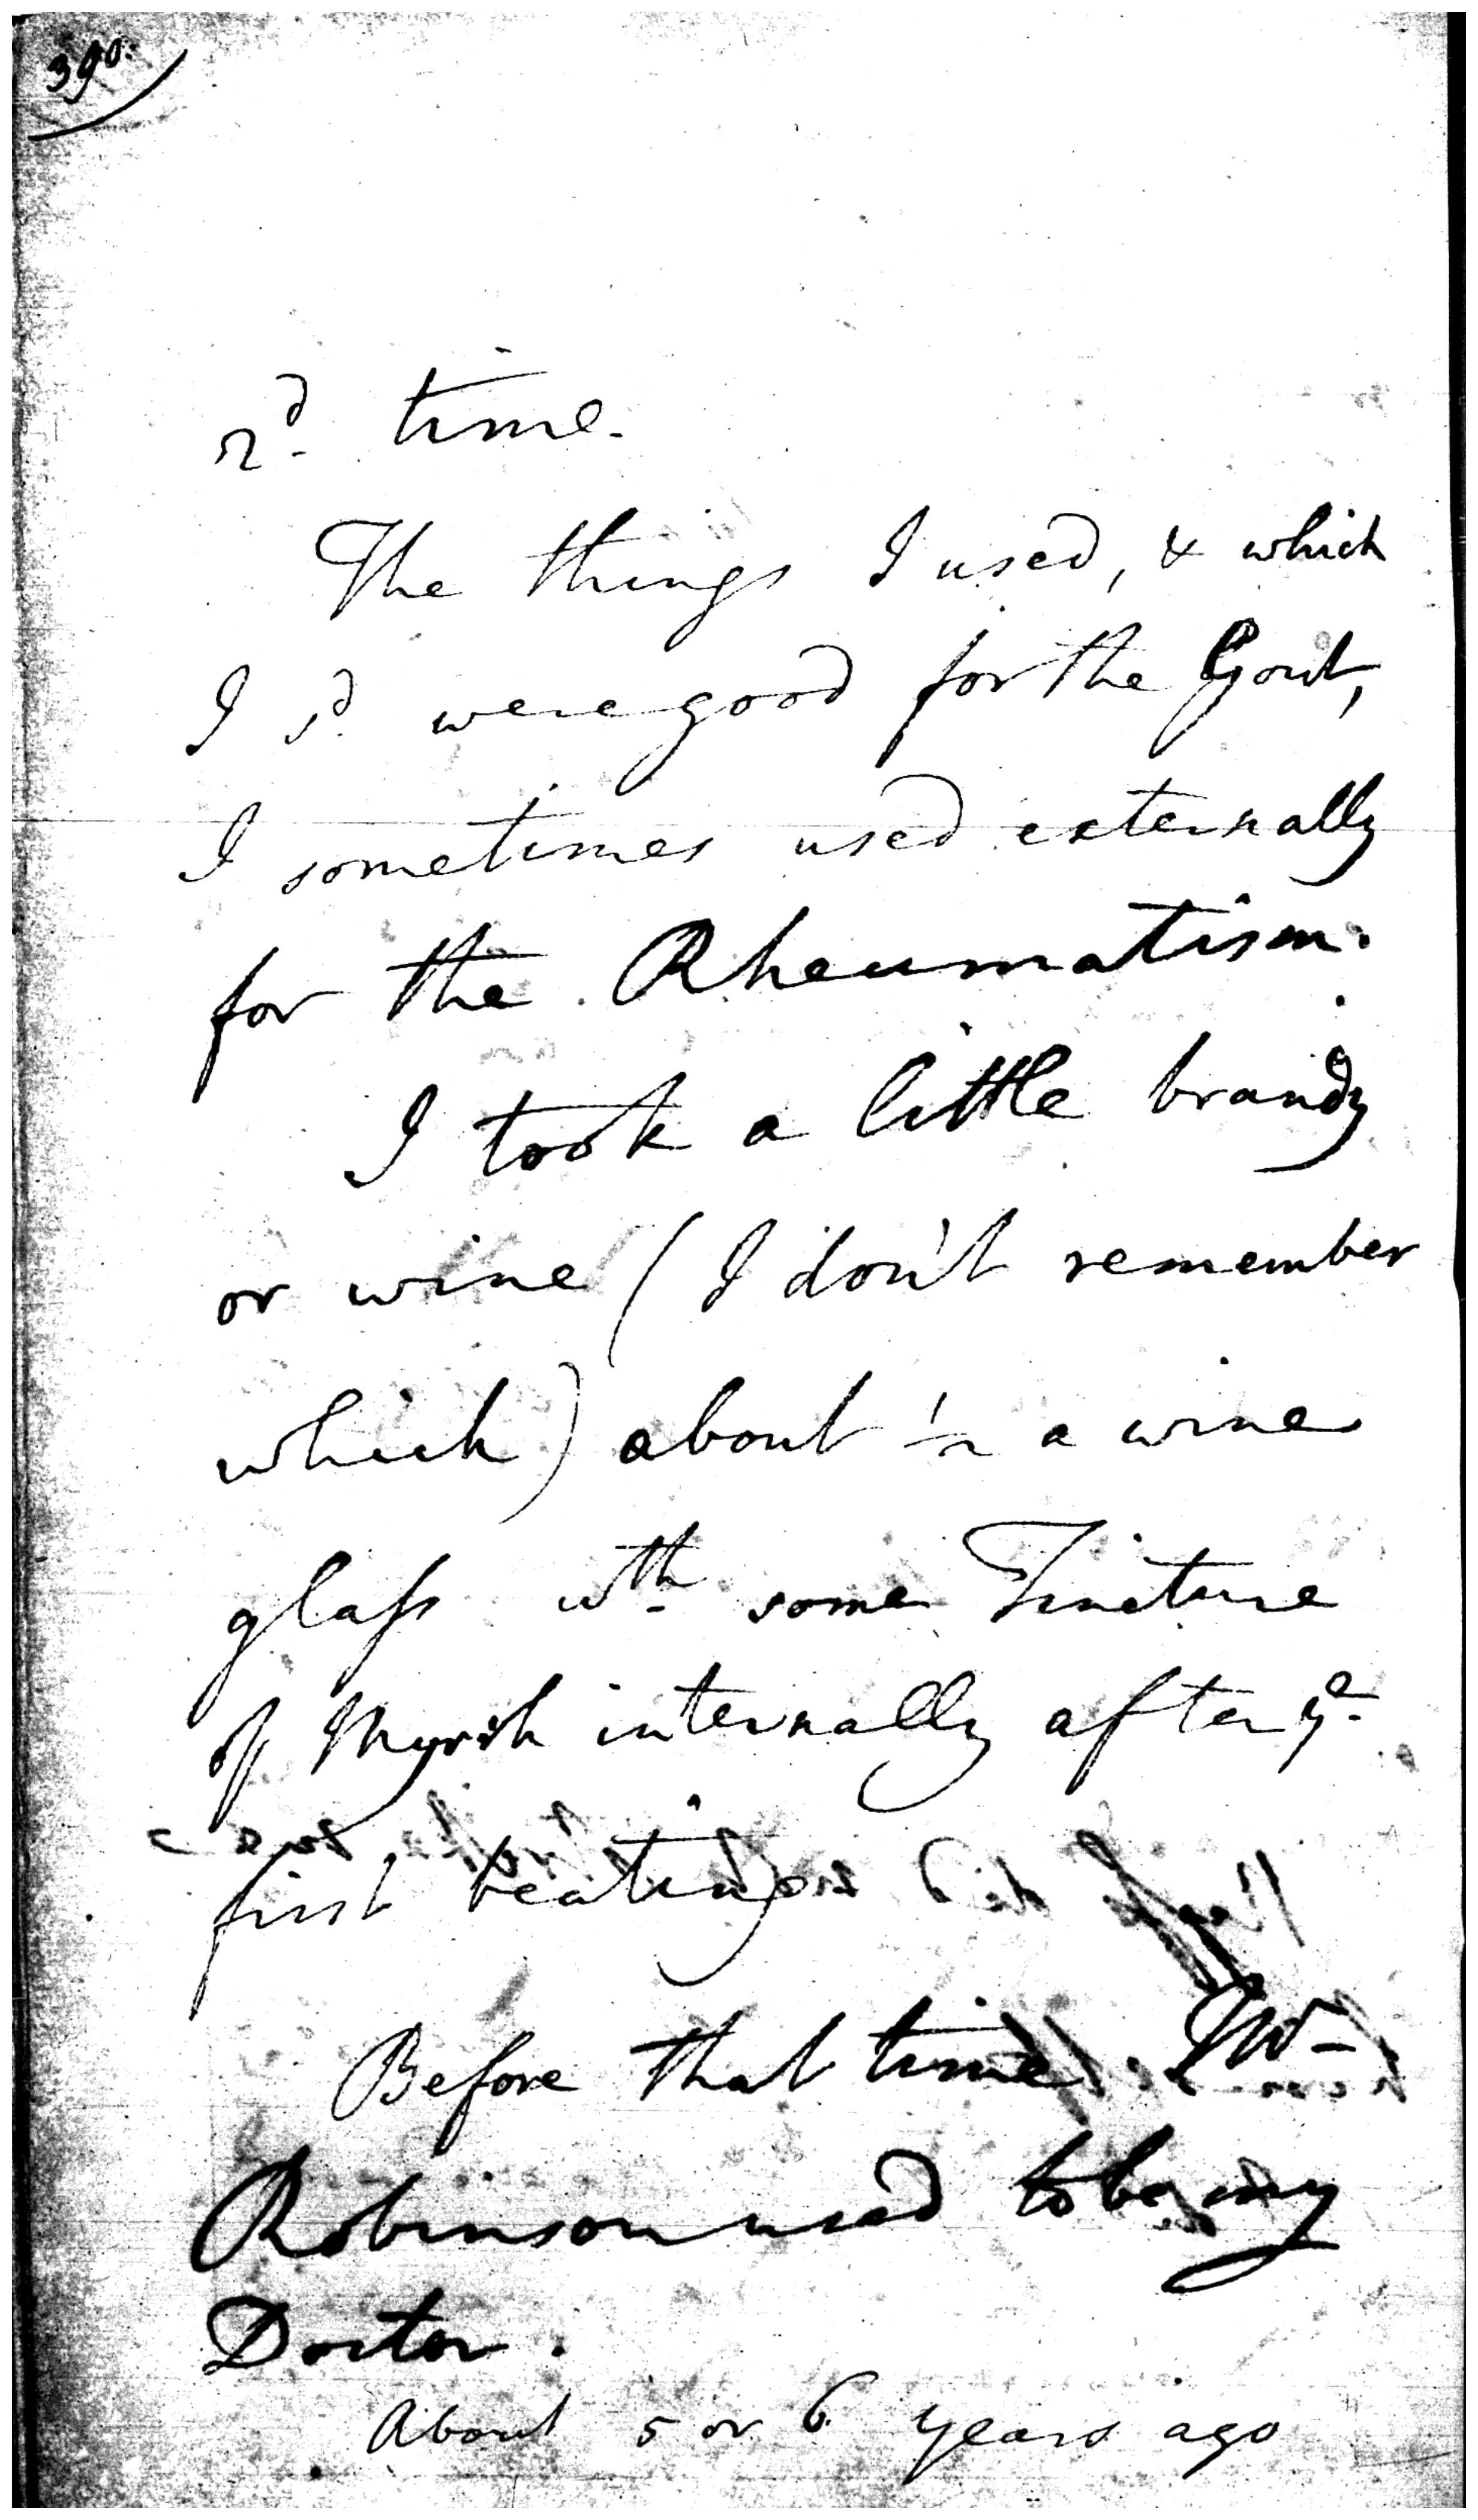 390.
2d. time.
The things I used, & which
I sd. were good for the Gout,
I sometimes used externally
for the Rheumatism.
I took a little brandy
or wine (I don't remember
which) about ½ a wine
glass wth. some Tincture
of Myrrh internally after ye.
first beating
Before that time
Robinson used to be my
Doctor.
About 5 or 6 years ago